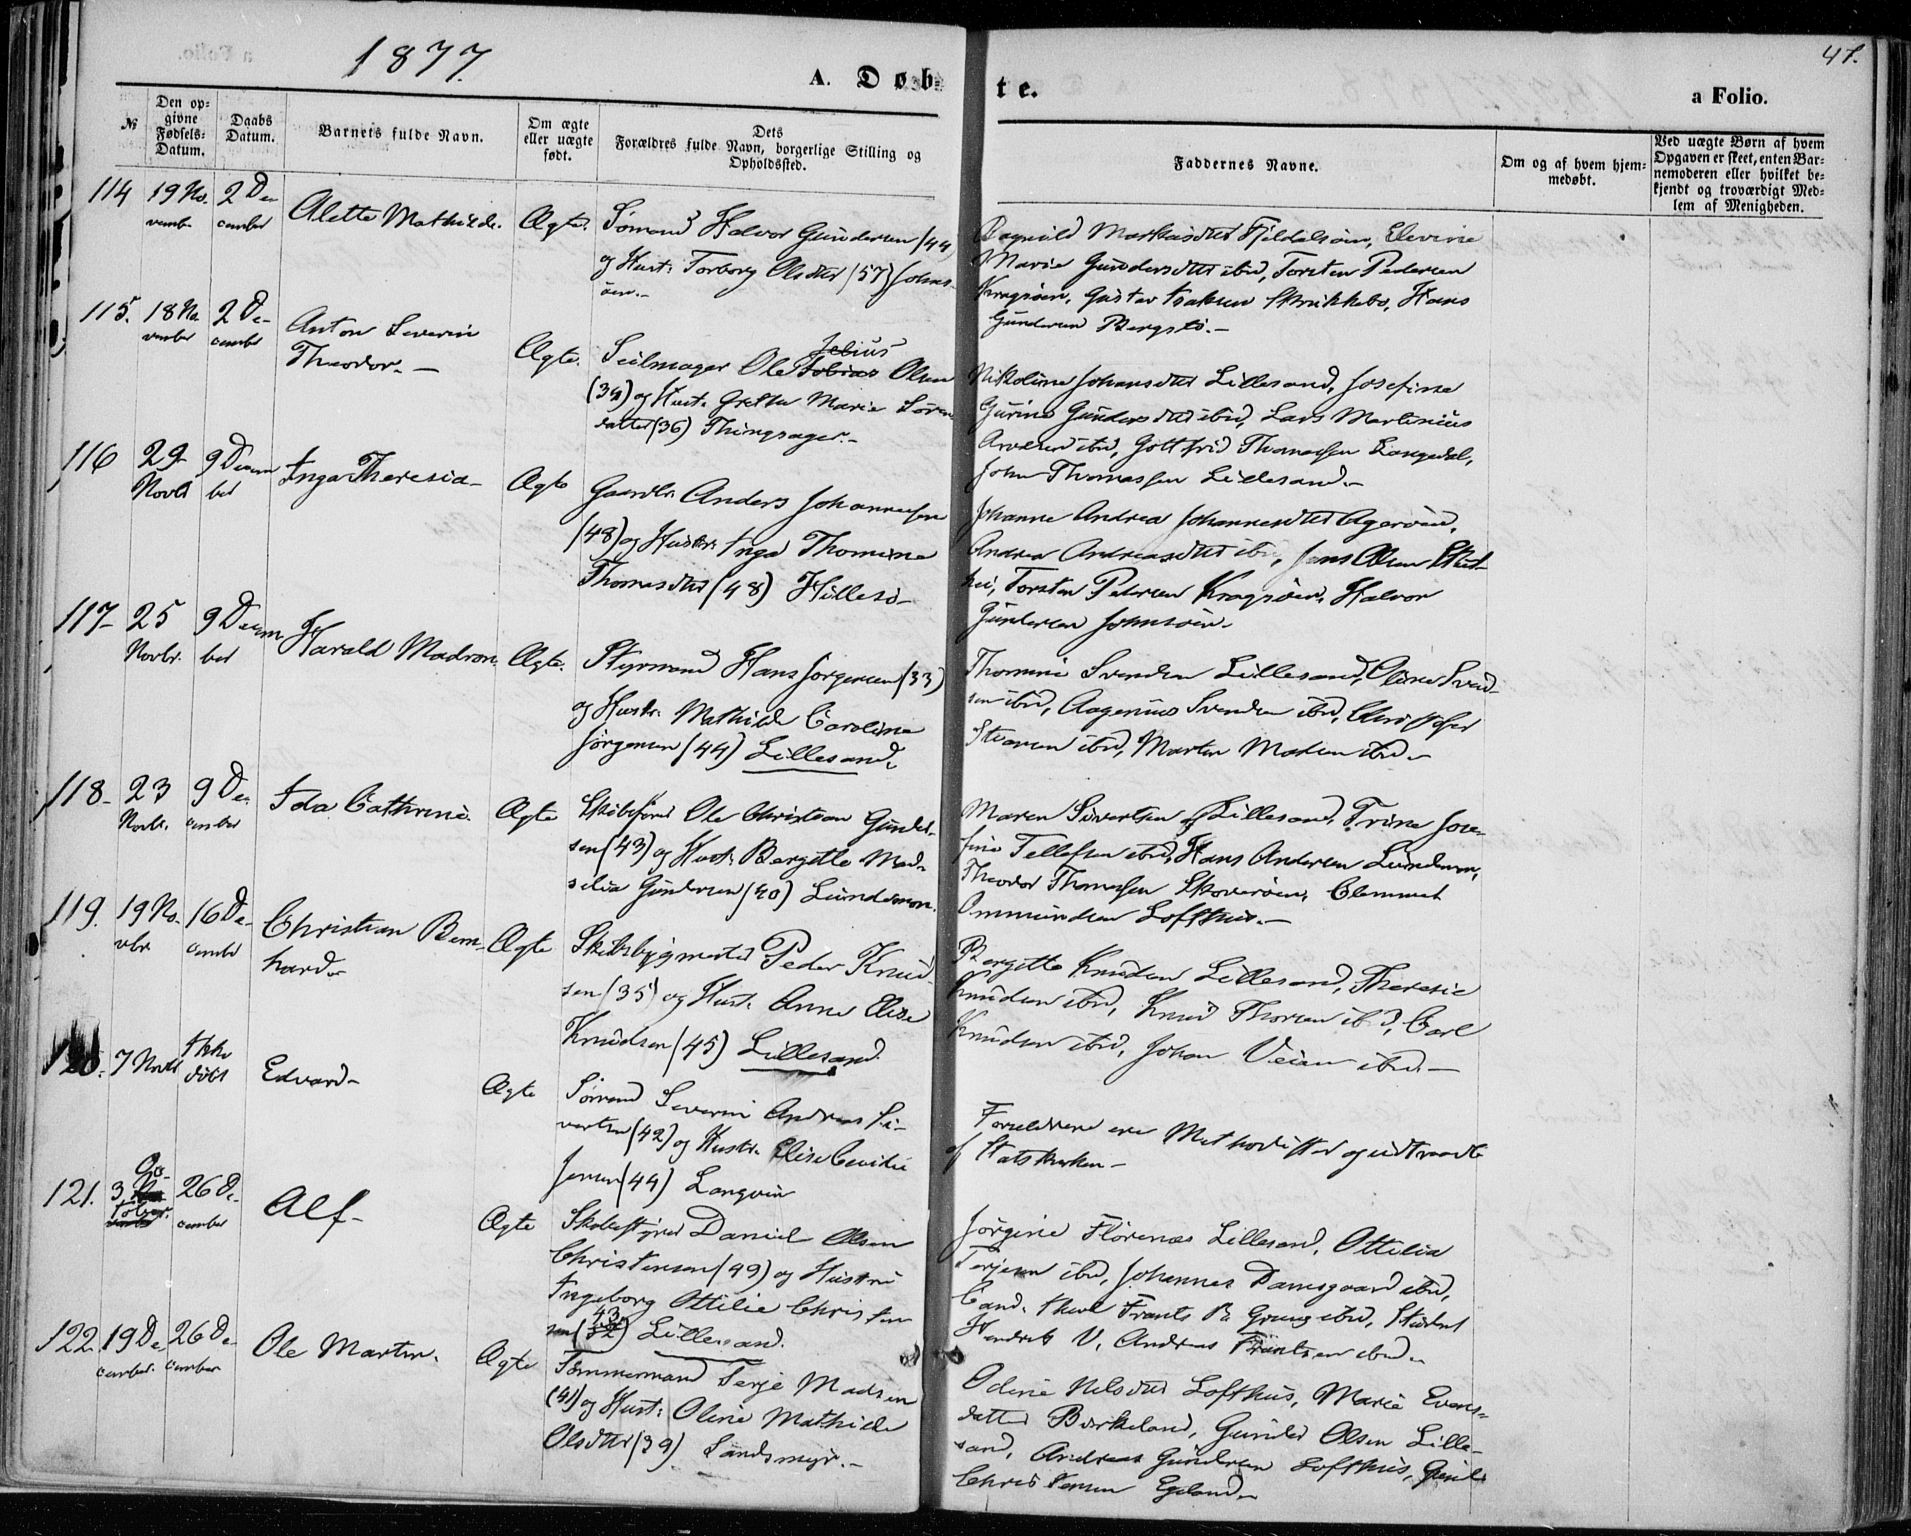 1877.
A. Døb-
te.
47.
a Folio.
№
Den op-
givne
Fødsels-
Datum.
Daabs
Datum.
Barnets fulde Navn.
Om ægte
eller uægte
født.
Dets
Forældres fulde Navn, borgerlige Stilling og
Opholdssted.
Faddernes Navne.
Om og af hvem hjem-
medøbt.
Ved uægte Børn af hvem
Opgaven er skeet, enten Bar-
nemoderen eller hvilket be-
kjendt og troværdigt Med-
lem af Menigheden.
114
19 No-
vember
2 De-
cember
Alette Mathilde.
Ægte.
Sømand Halvor Gundersen (44)
og Hust: Torborg Olsdtr (57) Johns-
øen.-
Ragnild Markusdtr Fjeldalsøen, Elevine
Marie Gundersdtr ibid, Torsten Pedersen
Kragsøen, Gustav Isaksen Skrukkebo, Hans
Gundersen Bergstø.-
115.
18 No-
vember
2 De-
cember
Anton Severin
Theodor.-
Ægte.
Julius
Seilmager Ole Tobias Olsen
(34) og Hust: Grethe Marie Søren-
datter (36) Thingsager.-
Nikoline Johansdtr Lillesand, Josefine
Gurine Gundersdtr ibid, Lars Martinius
ibid, Gottfrid Thomassen Langedal,
John Thomassen Lillesand.-
116
29
Novbr
9 Decem
ber
Inga Theresia-
Ægte
Gaardbr Anders Johannessen
(48) og Hustr: Inga Thomine
Thomasdtr (48) Hillesø-
Johanne Andrea Johannesdtr Agerøen,
Andrea Andreasdtr ibid, Jens Olsen
Torsten Pedersen Kragsøen, Halvor
Gundersen Johnsøen.
117-
25
Novbr.
9 Decem
ber
Harald Madson.
Ægte.
Styrmand Hans Jørgensen (33)
og Hustr: Mathilde Caroline
Jørgensen (44) Lillesand.
Thomine Svendsen Lillesand, Oline Svend-
sen ibid, Aagenius Svendsen ibid, Christopher
ibid, Martin Madsen ibid-
118-
23
Novbr.
9 De-
cember
Ida Cathrine.
Ægte
Skibsfører Ole Christian Gunder-
sen (43) og Hust: Bergitte Mad-
silia Gundersen (40) Lundemoen.
Maren Sivertsen Lillesand, Trine Jose-
fine Tellefsen ibid, Hans Andersen Lundemoen,
Theodor Thomassen Skoverøen, Clemmet
Ommundsen Lofthus.-
119.
19 No-
vbr
16 De-
cember
Christian Bern-
hard-
Ægte
Skibsbygmester Peder Knud-
sen (35) og Hust: Anne Elise
Knudsen (45) Lillesand.
Bergitte Knudsen Lillesand, Theresie
Knudsen ibid, Knud Thorsen ibid, Carl
Knudsen ibid, Johan Veien ibid.-
120.
7 Novbr
Ikke
døbt
Edvard-
Ægte
Sømand Severin Andreas Si-
vertsen (42) og Hustr: Elise Cecilie
Jensen (44) Langvin
Forældrene ere Methodister og udtraadte
af Statskirken-
121.
3 Oc-
tober.
26 De-
cember
Alf-
Ægte
Skibsstyrer Daniel Olsen
Christensen (49) og Hustru
Ingeborg Ottilie Christen
43
sen (32) Lillesand.
Jørgine Florenæs Lillesand, Ottilia
Terjesen ibid, Johannes Damsgaard ibid,
Cand. theol Frants B. Grung ibid, Student
Hendrik V, Andreas Frantsen ibid.
122.
19 De
cember.
26 De
cember
Ole Martin.
Ægte
Tømmermand Terje Madsen
(41) og Hust: Oline Mathilde
Olsdtr (39) Sandsmyr.-
Odine Nilsdtr Lofthus, Marie Evens-
datter Birkeland, Gunder Olsen Lille-
sand, Andreas Gundersen Lofthus,
Christensen Egeland.